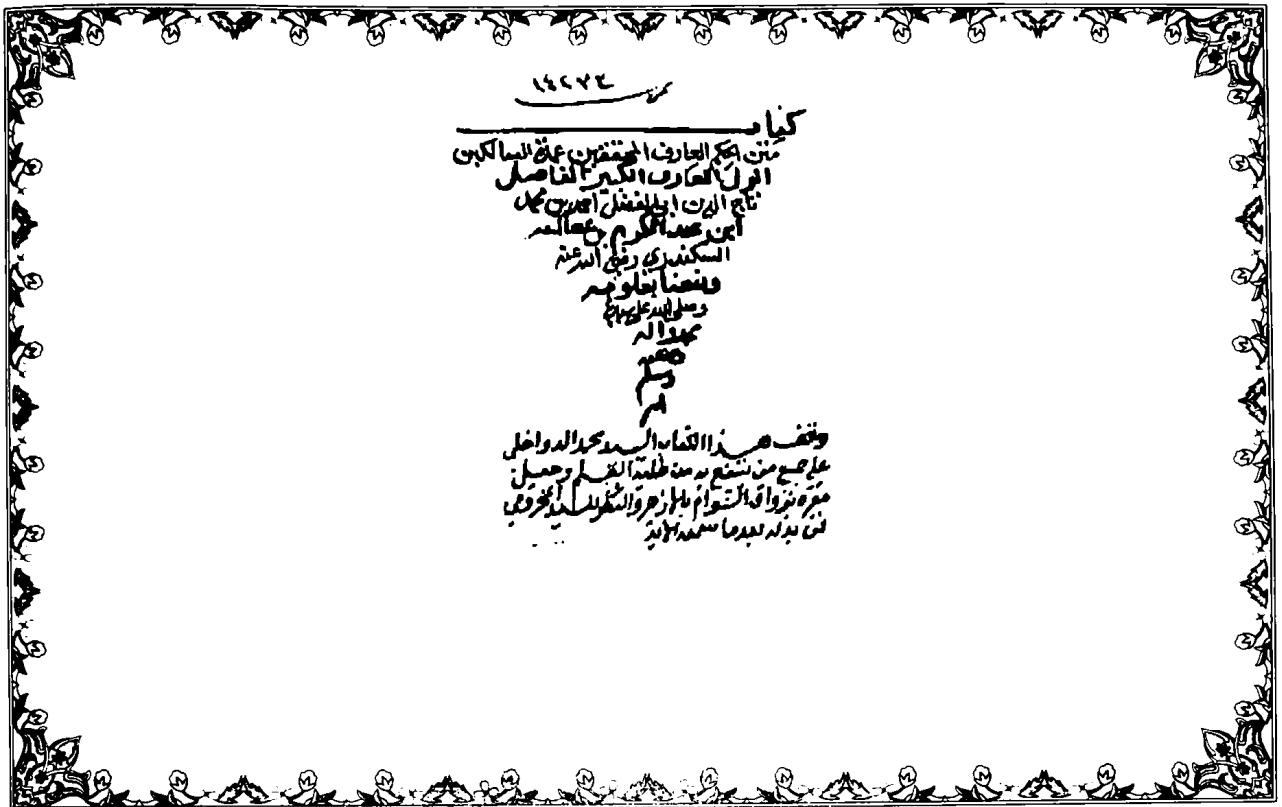 نمرة ١٤٢٣٤
كتاب
متن الحكم العارف المحققين عمدة السالكين
الولي العارف الكبير الفاضل
تاج الدين ابي الفضل احمد بن محمد
ابن عبد الكريم بن عطا الله
السكندري رضي الله عنه
ونفعنا بعلومه
وصلى الله على سيدنا
محمد واله
وصحبه
وسلم
وقف هذا الكتاب السيد محمد الدواخلي
على جميع من ينتفع به من طلبة العلم وجعل
مقره برواق الشوام بالازهر والنظر للسيد
فمن بدله بعدما سمعه الآية